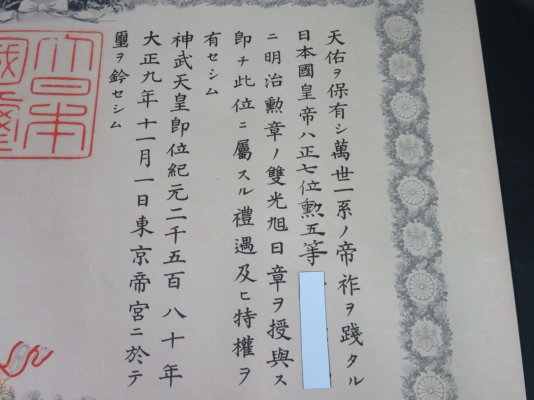 天佑ヲ保有シ萬世一系ノ帝祚ヲ踐タル
日本國皇帝ハ正七位勲五等
ニ明治勲章ノ雙光旭日章ヲ授與ス
卽チ此位ニ屬スル禮遇及ヒ特權ヲ
有セシム
神武天皇卽位紀元二千五百八十年
大正九年十一月一日東京帝宮ニ於テ
璽ヲ鈐セシム
大日本
國璽